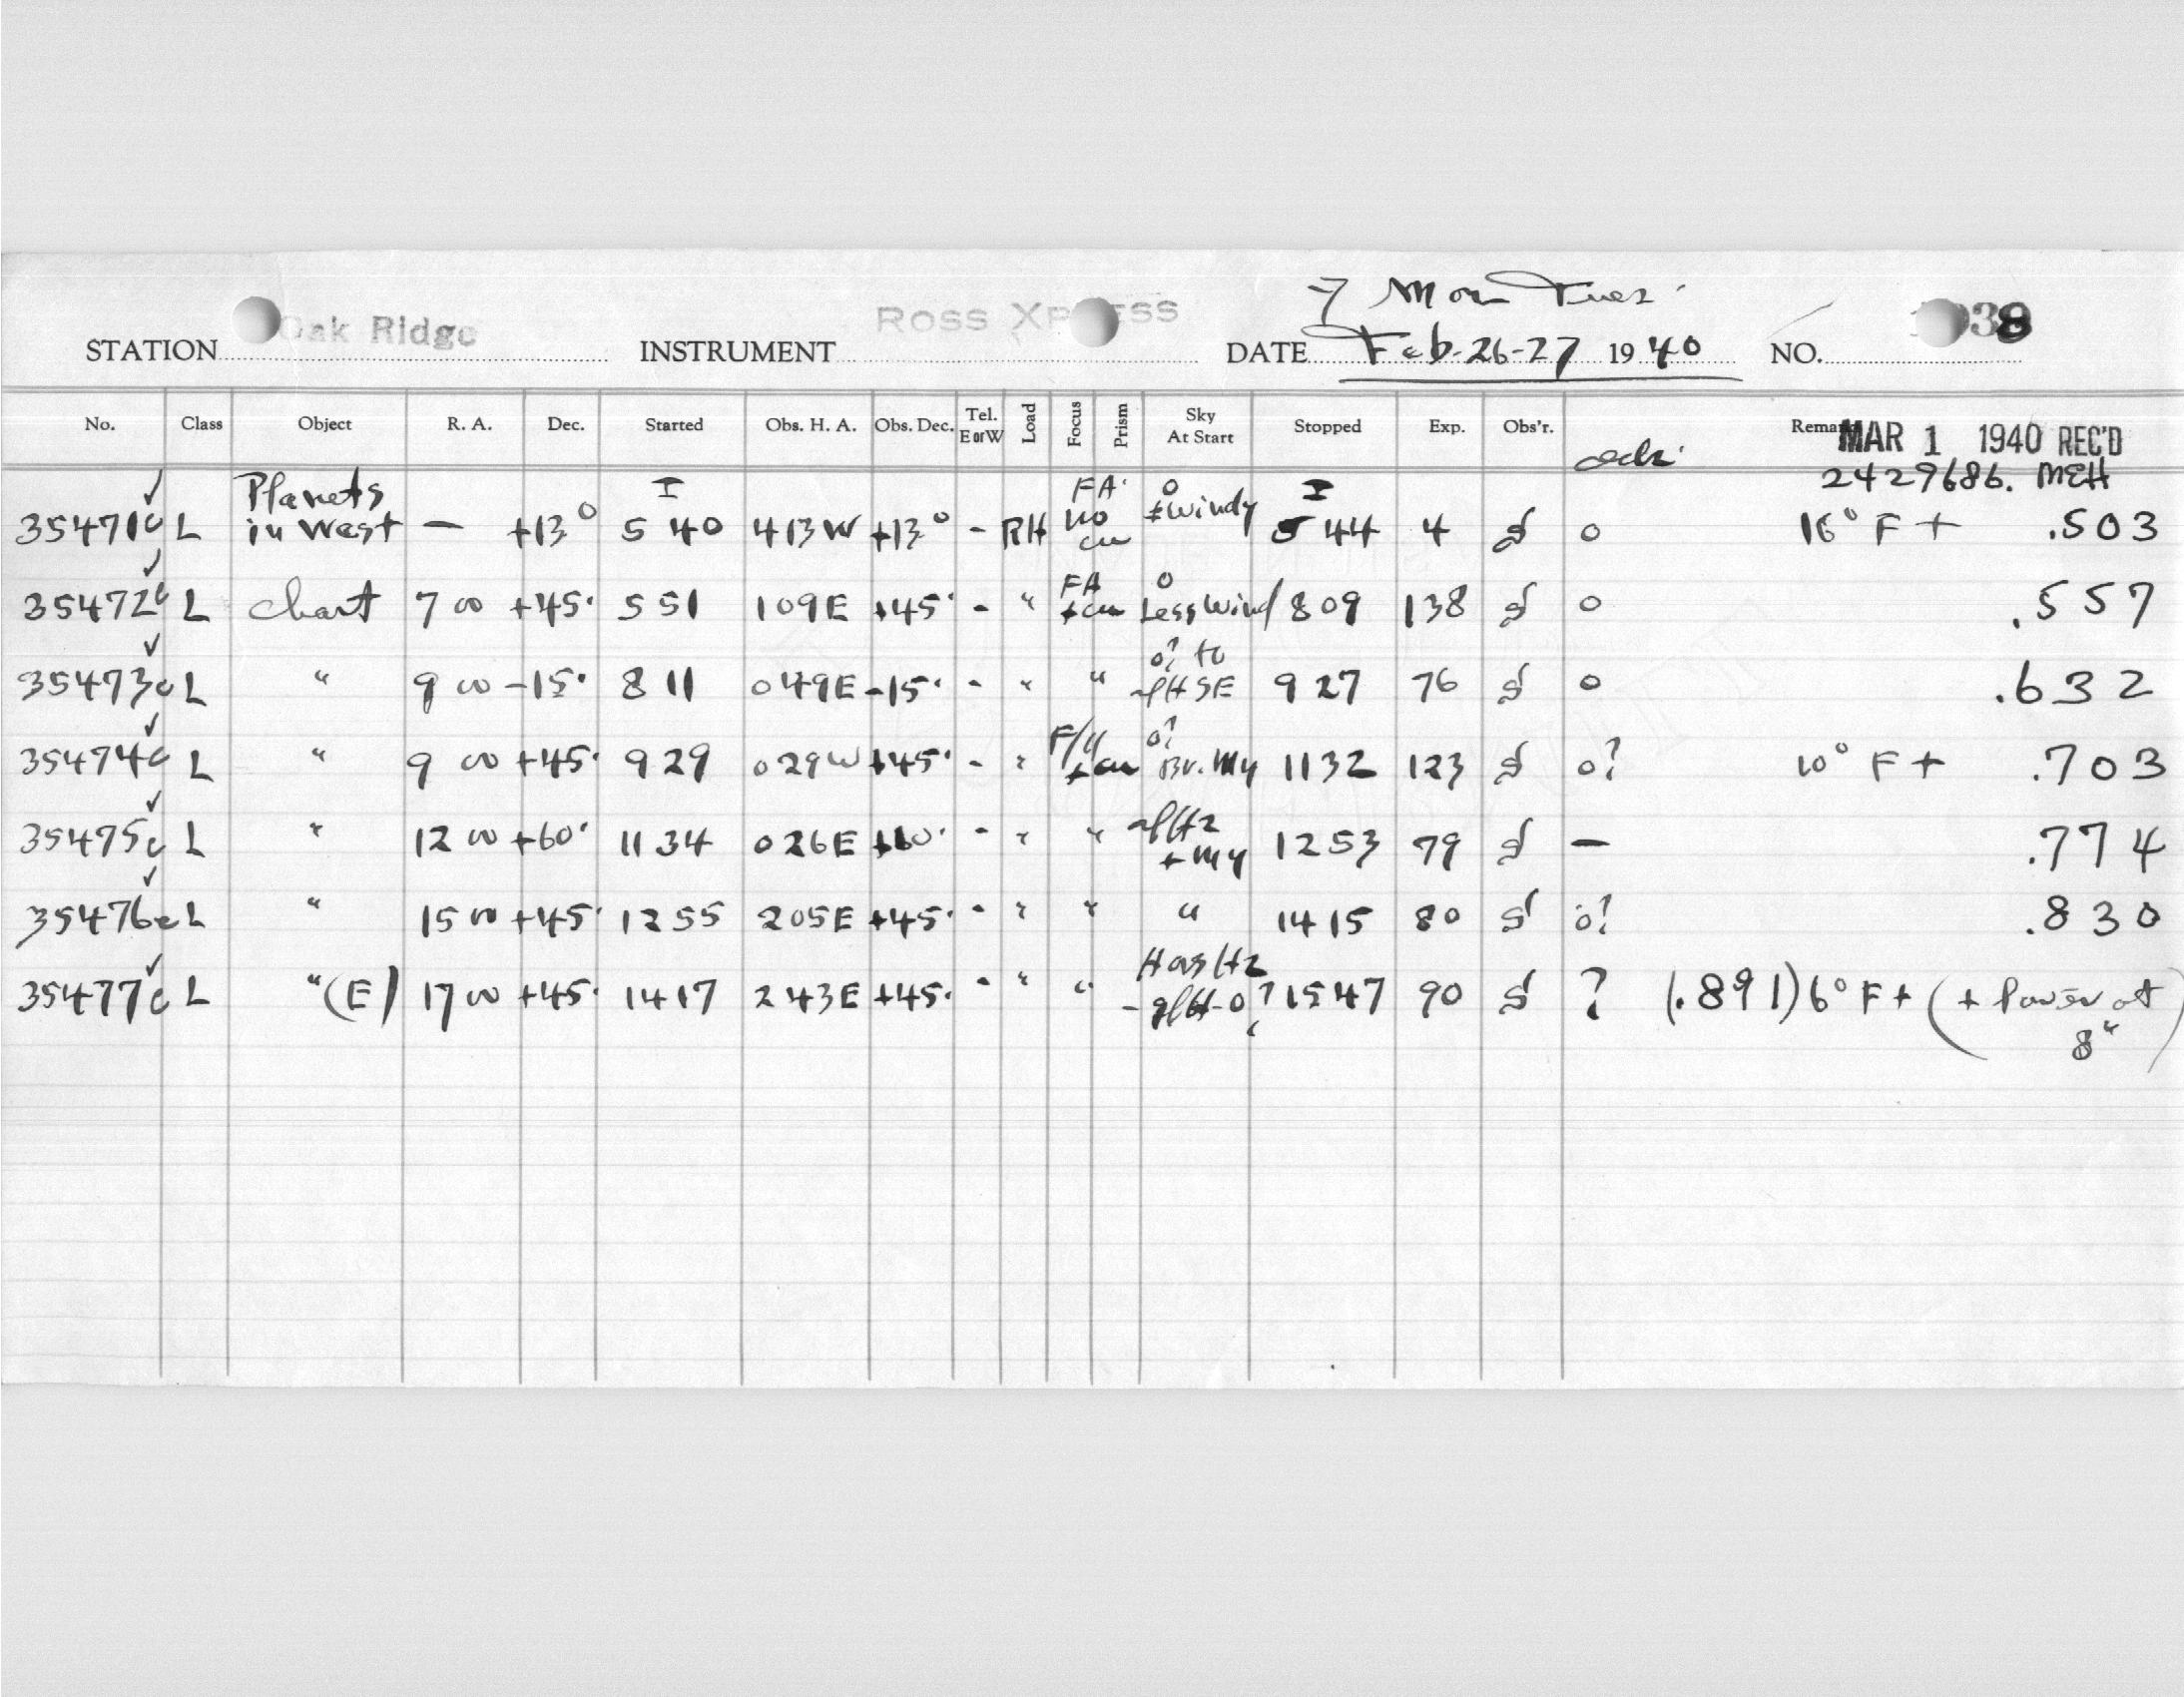 7 Mon Tues.
STATION Oak Ridge INSTRUMENT ROSS XPRESS DATE Feb. 26-27 1940 NO. 938
No. Class Object R. A. Dec. Started Obs. H. A. Obs. Dec. Tel. E or W Load Focus Prism Sky At Start Stopped Exp. Obs'r. Remarks
MAR 1 1940 REC'D
2429686. MEH
35471c L Planets in West — +13° I 5 40 413W +13° - RH FA. no cu 0 ±windy I 5 44 4 0 16° F + .503
35472c L chart 7 00 +45· 5 51 109E +45· - " FA +cu 0 Less Wind 8 09 138 0 .557
35473c L " 9 00 -15· 8 11 049E -15· - " " 0? to SE 9 27 76 0 .632
35474c L " 9 00 +45· 9 29 029W +45· - " +cu 0? Br. My 11 32 123 0? 10° F + .703
35475c L " 12 00 +60· 11 34 026E +60· - " " + my 12 53 79 — .774
35476c L " 15 00 +45· 12 55 205E +45· - " " " 14 15 80 0? .830
35477c L "(E) 17 00 +45· 14 17 243E +45· - " " Has Hz 15 47 90 ? (.891) 6° F + (+ Power at 8")